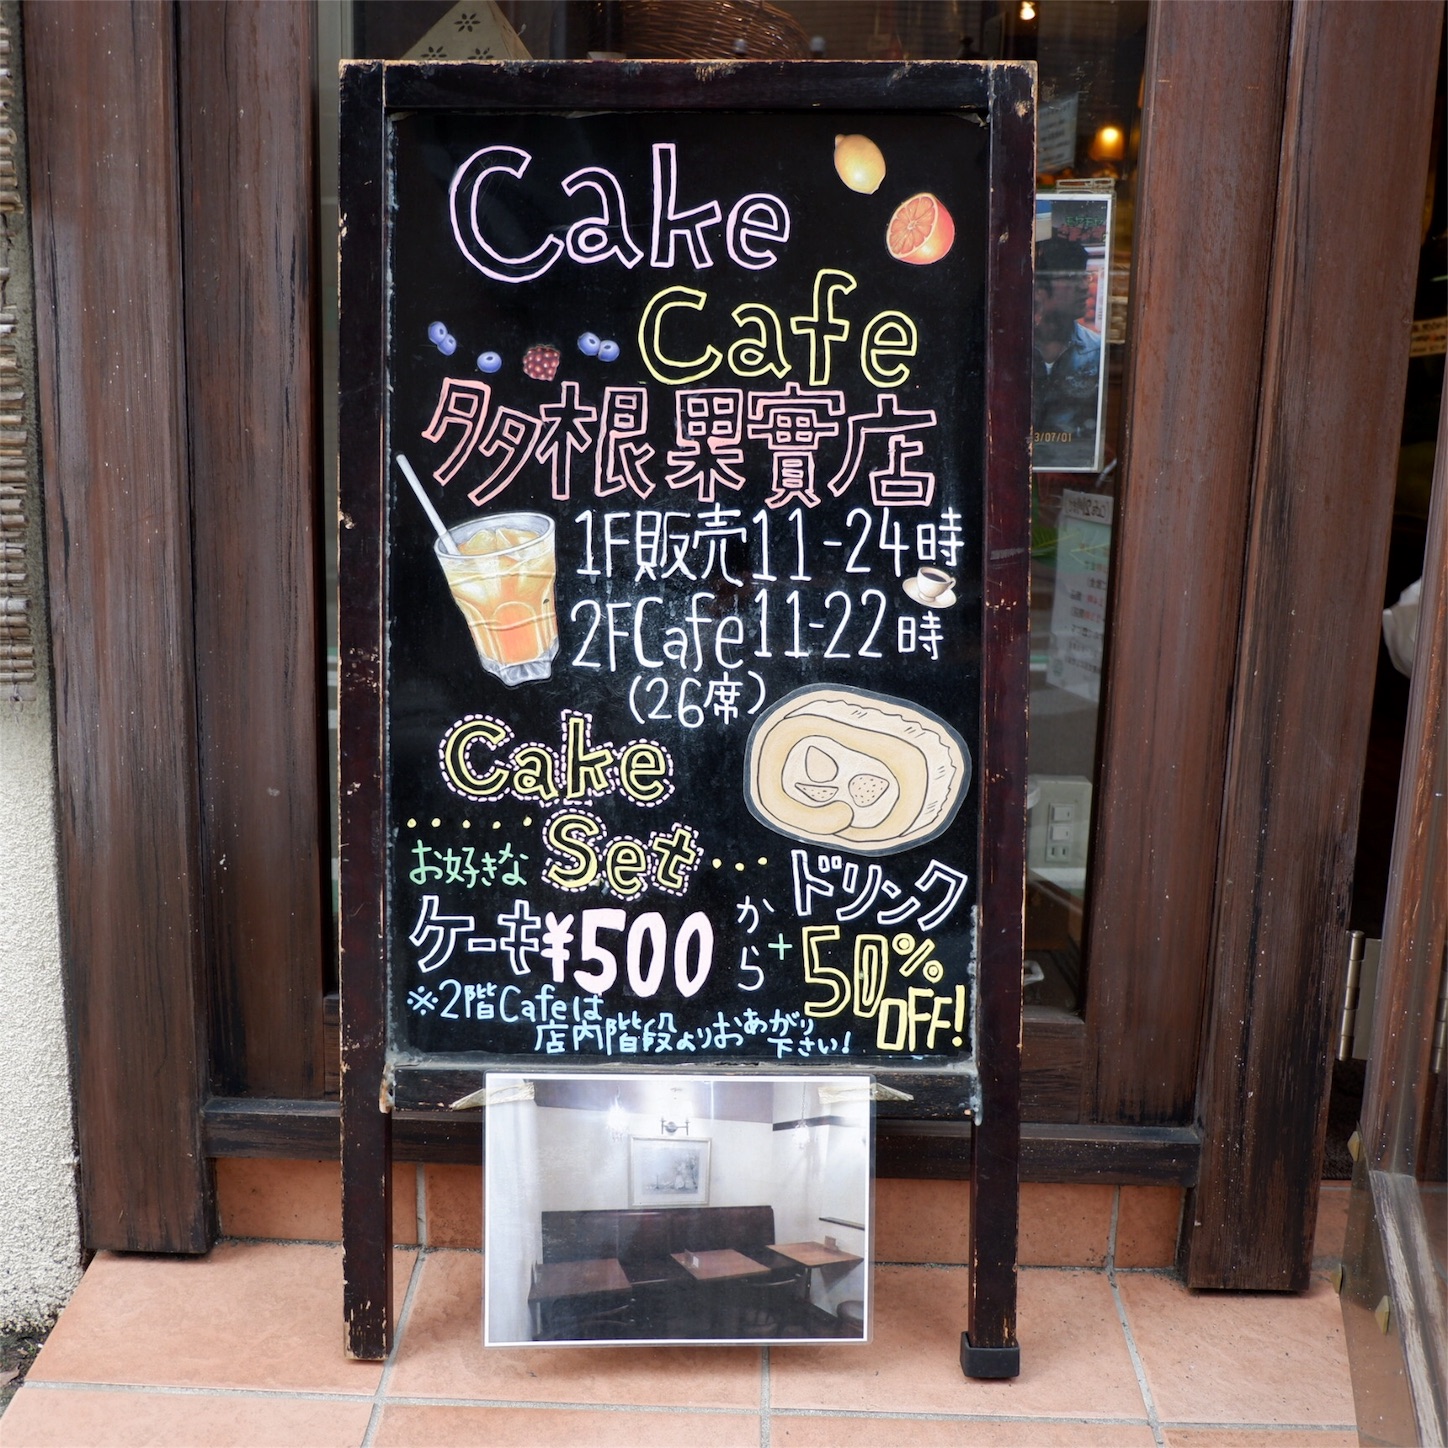 Cake
Cafe
多根果實店
1F販売11-24時
2FCafe11-22時
(26席)
Cake
Set
お好きな
ケーキ¥500から
+ドリンク
50%OFF!
※2階Cafeは
店内階段よりおあがり下さい!
3/07/01